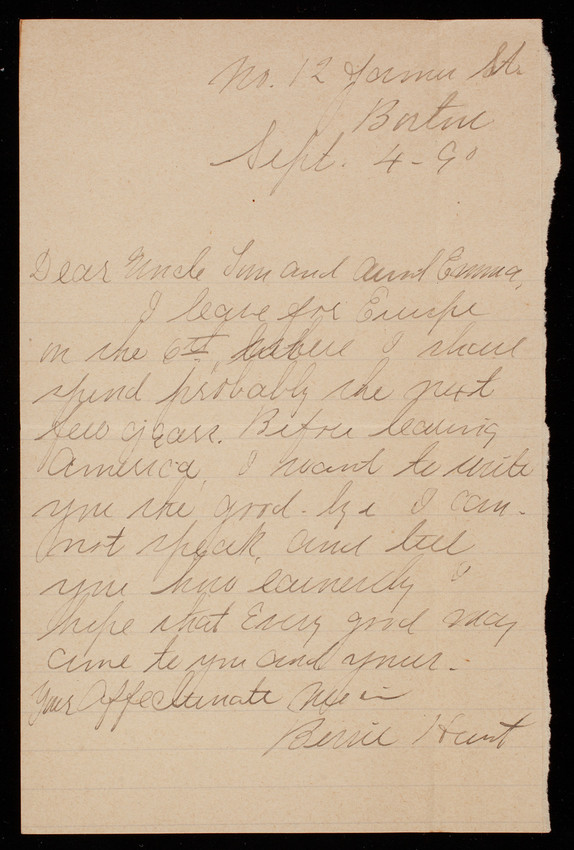 No. 12 St.
Boston
Sept. 4 - 90
Dear Uncle Tom and Aunt Emma,
I leave for Europe
on the 6th, where I shall
spend probably the next
few years. Before leaving
America, I want to write
you the good-bye I can-
not speak, and tell
you how earnestly I
hope that Every good may
come to you and yours.-
Your Affectionate Niece
Hunt